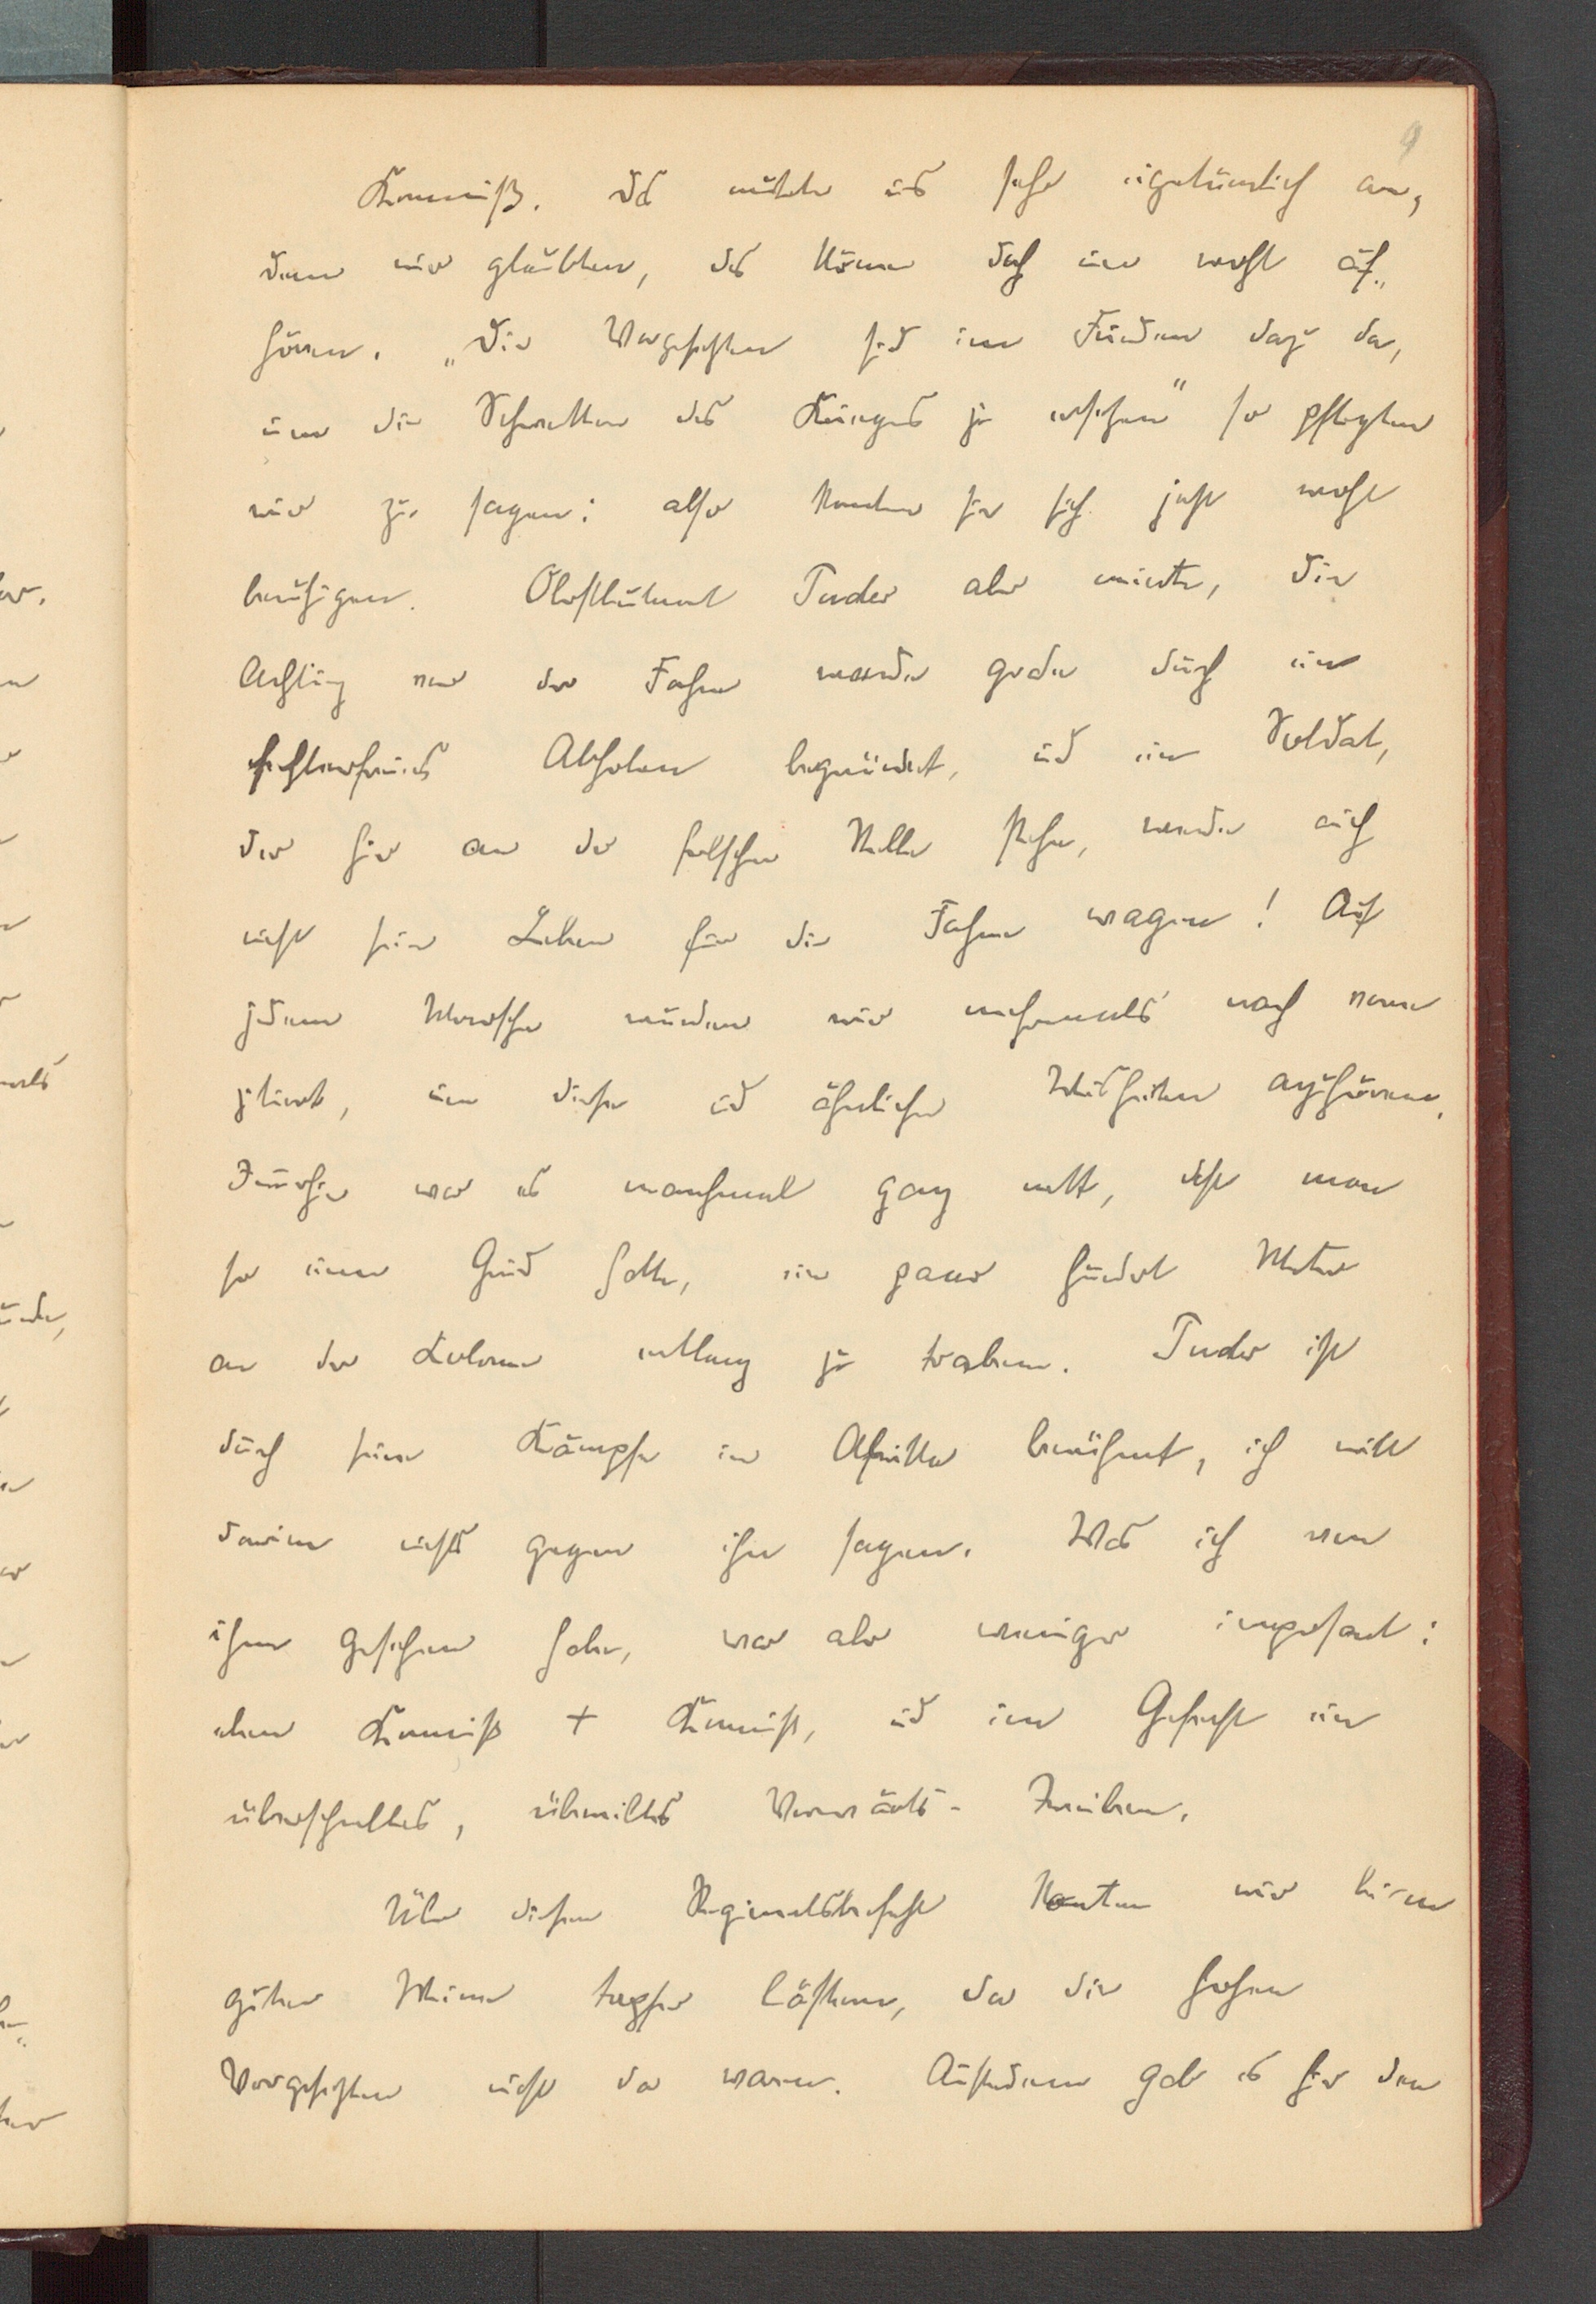 9
Kommiß. Das mutete uns sehr eigentümlich an,
denn wir glaubten, das könne doch nun wohl auf-
hören. „Die Vorgesetzten sind im Frieden dazu da,
um die Schrecken des Krieges zu ersetzen" so pflegten
wir zu sagen; also konnten sie sich jetzt wohl
beruhigen. Oberstleutnant Teuder aber meinte, die
Achtung vor der Fahne werde grade durch ein
fehlerfreies Abholen begründet, und ein Soldat,
der hier an der falschen Stelle stehe, werde auch
nicht sein Leben für die Fahne wagen! Auf
jedem Marsche wurden wir mehrmals nach vorne
zitiert, um diese und ähnliche Weisheiten anzuhören,
Immerhin war es manchmal ganz nett, dass man
so einen Grund hatte, ein paar hundert Meter
an der Kolonne entlang zu traben. Teuder ist
durch seine Kämpfe in Afrika berühmt, ich will
darin nichts gegen ihn sagen. Was ich von
ihm gesehen habe, war aber weniger imposant:
eben Kommiß + Kommiß, und im Gefecht ein
überhastetes, übereiltes Vorwärts-Treiben.
Über diesen Regimentsbefehl konnten wir beim
guten Weine tapfer lästern, da die hohen
Vorgesetzten nicht da waren. Außerdem gab es hier den